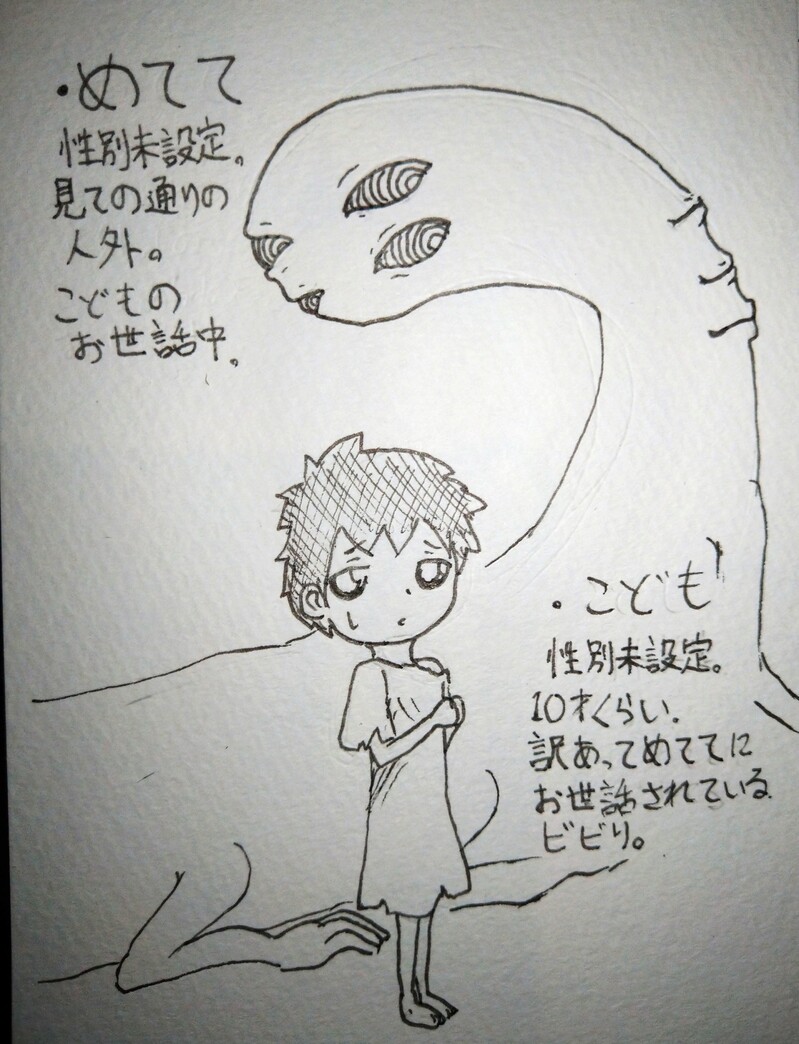 ・めてて
性別未設定。
見ての通りの
人外。
こどもの
お世話中。
・こども
性別未設定。
10才くらい.
訳あってめててに
お世話されている
ビビり。